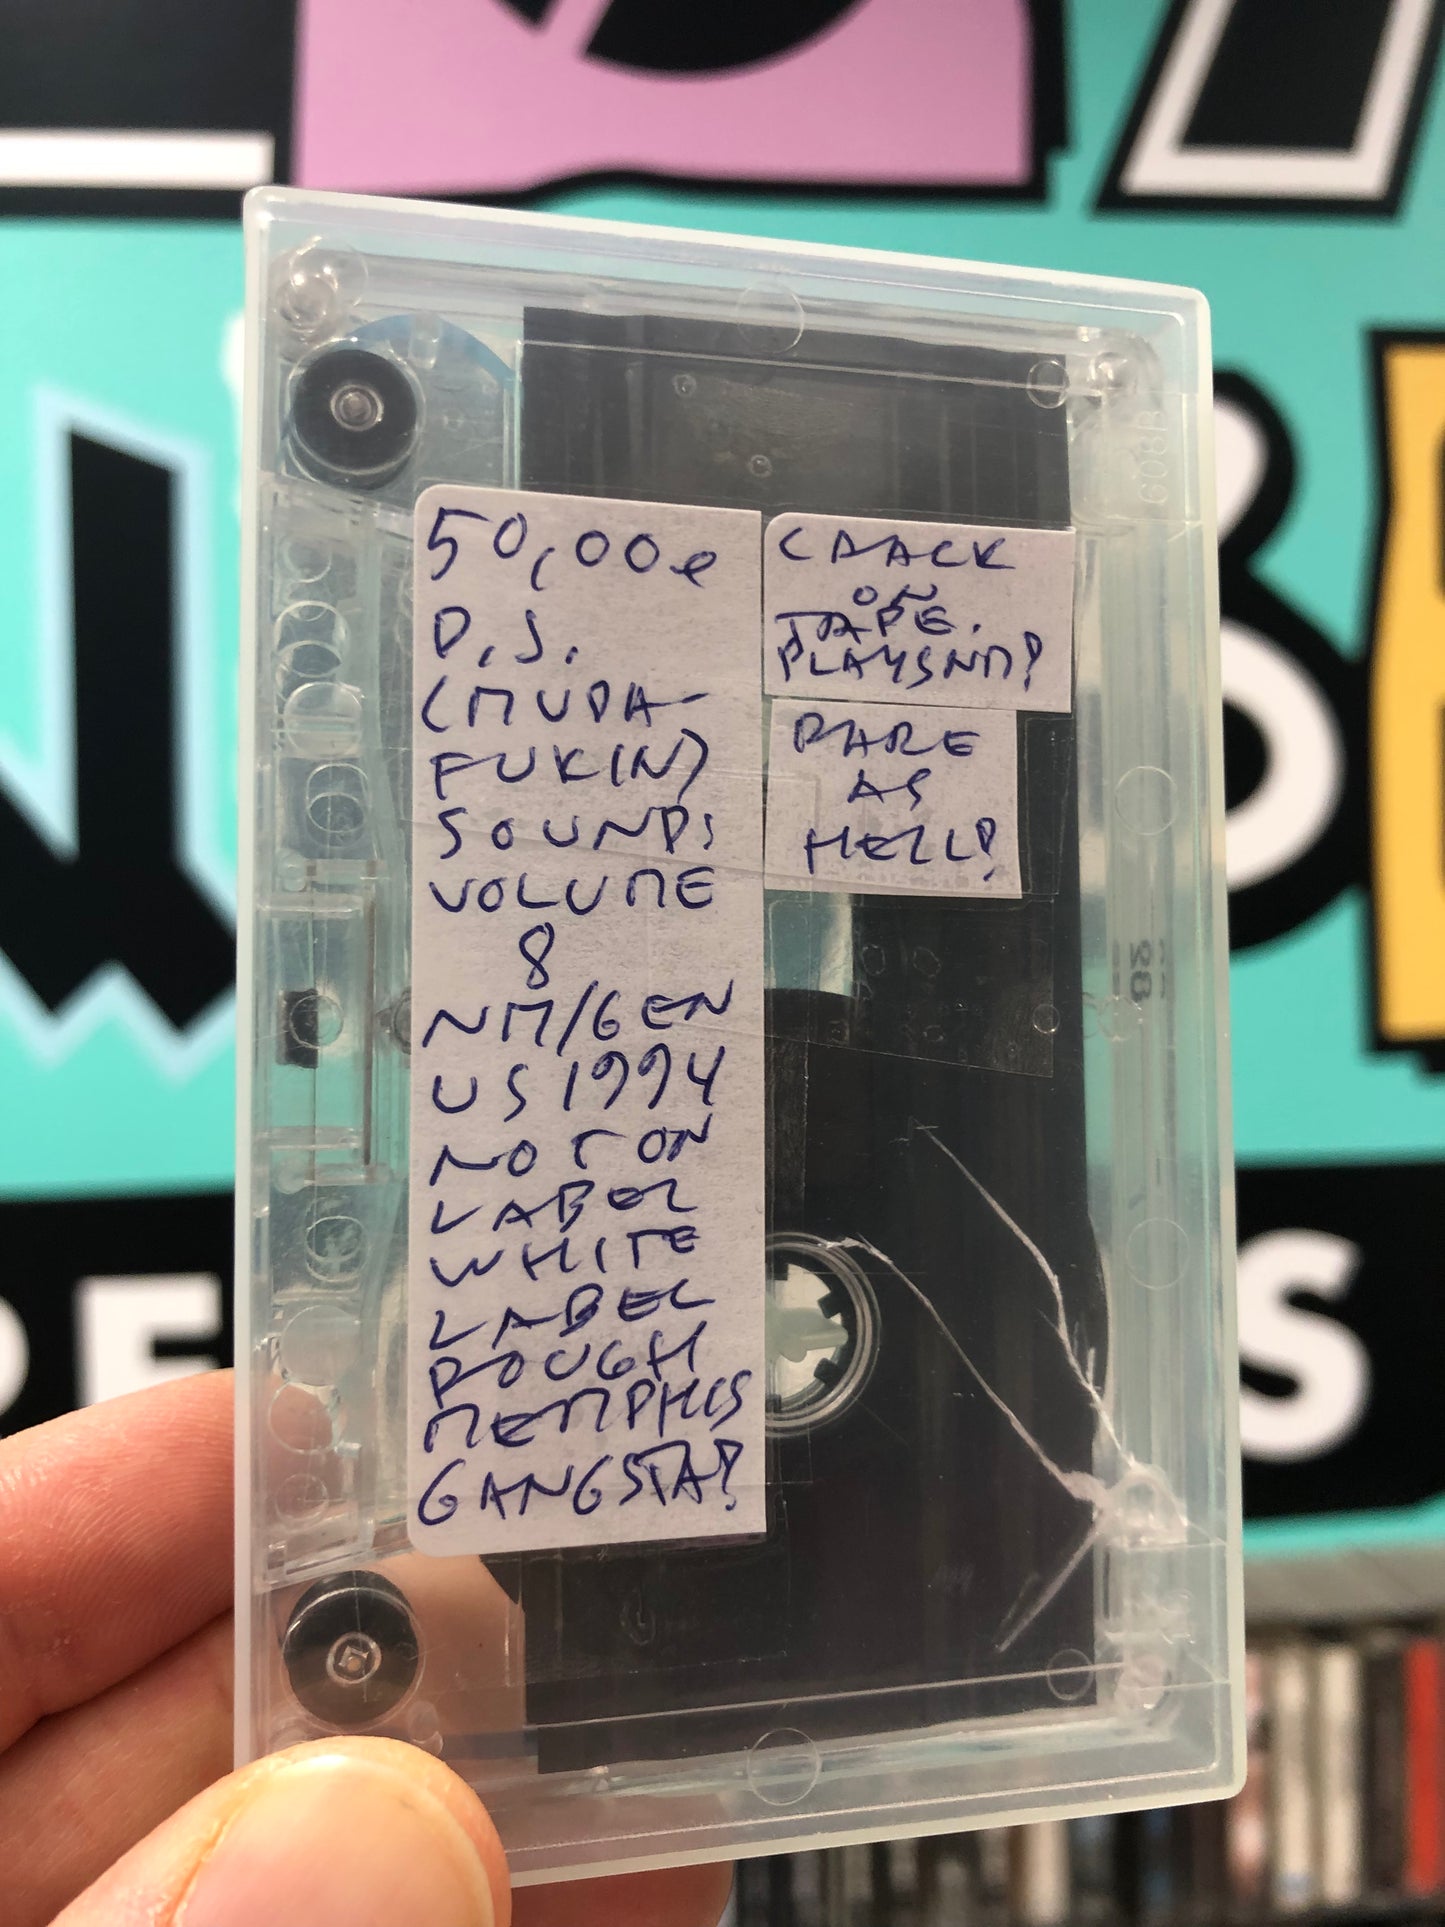 50,00e
D.J.
(MUDA-
FUKIN)
SOUND:
VOLUME
8
NM/GEN
US 1994
NOT ON
LABEL
WHITE
LABEL
ROUGH
MEMPHIS
GANGSTA!
CRACK
ON
TAPE.
PLAYS NM!
RARE
AS
HELL!
608B